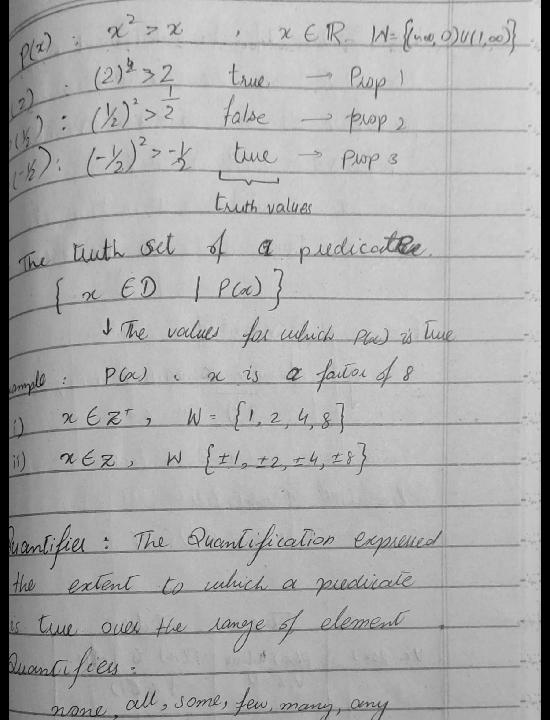 P(x) : x² > x , x ∈ R W = {(-∞, 0) ∪ (1, ∞)}
(2) : (2)² > 2 true → Prop 1
(½) : (½)² > ½ false → prop 2
(-½) : (-½)² > -½ true → Prop 3
truth values
The truth set of a predicate.
{ x ∈ D | P(x) }
↓ The values for which P(x) is true
ample : P(x) : x is a factor of 8
i) x ∈ Z⁺, W = {1, 2, 4, 8}
ii) x ∈ Z, W {±1, ±2, ±4, ±8}
uantifier : The Quantification expressed
the extent to which a predicate
is true over the range of element
Quantifiers :
none, all, some, few, many, any